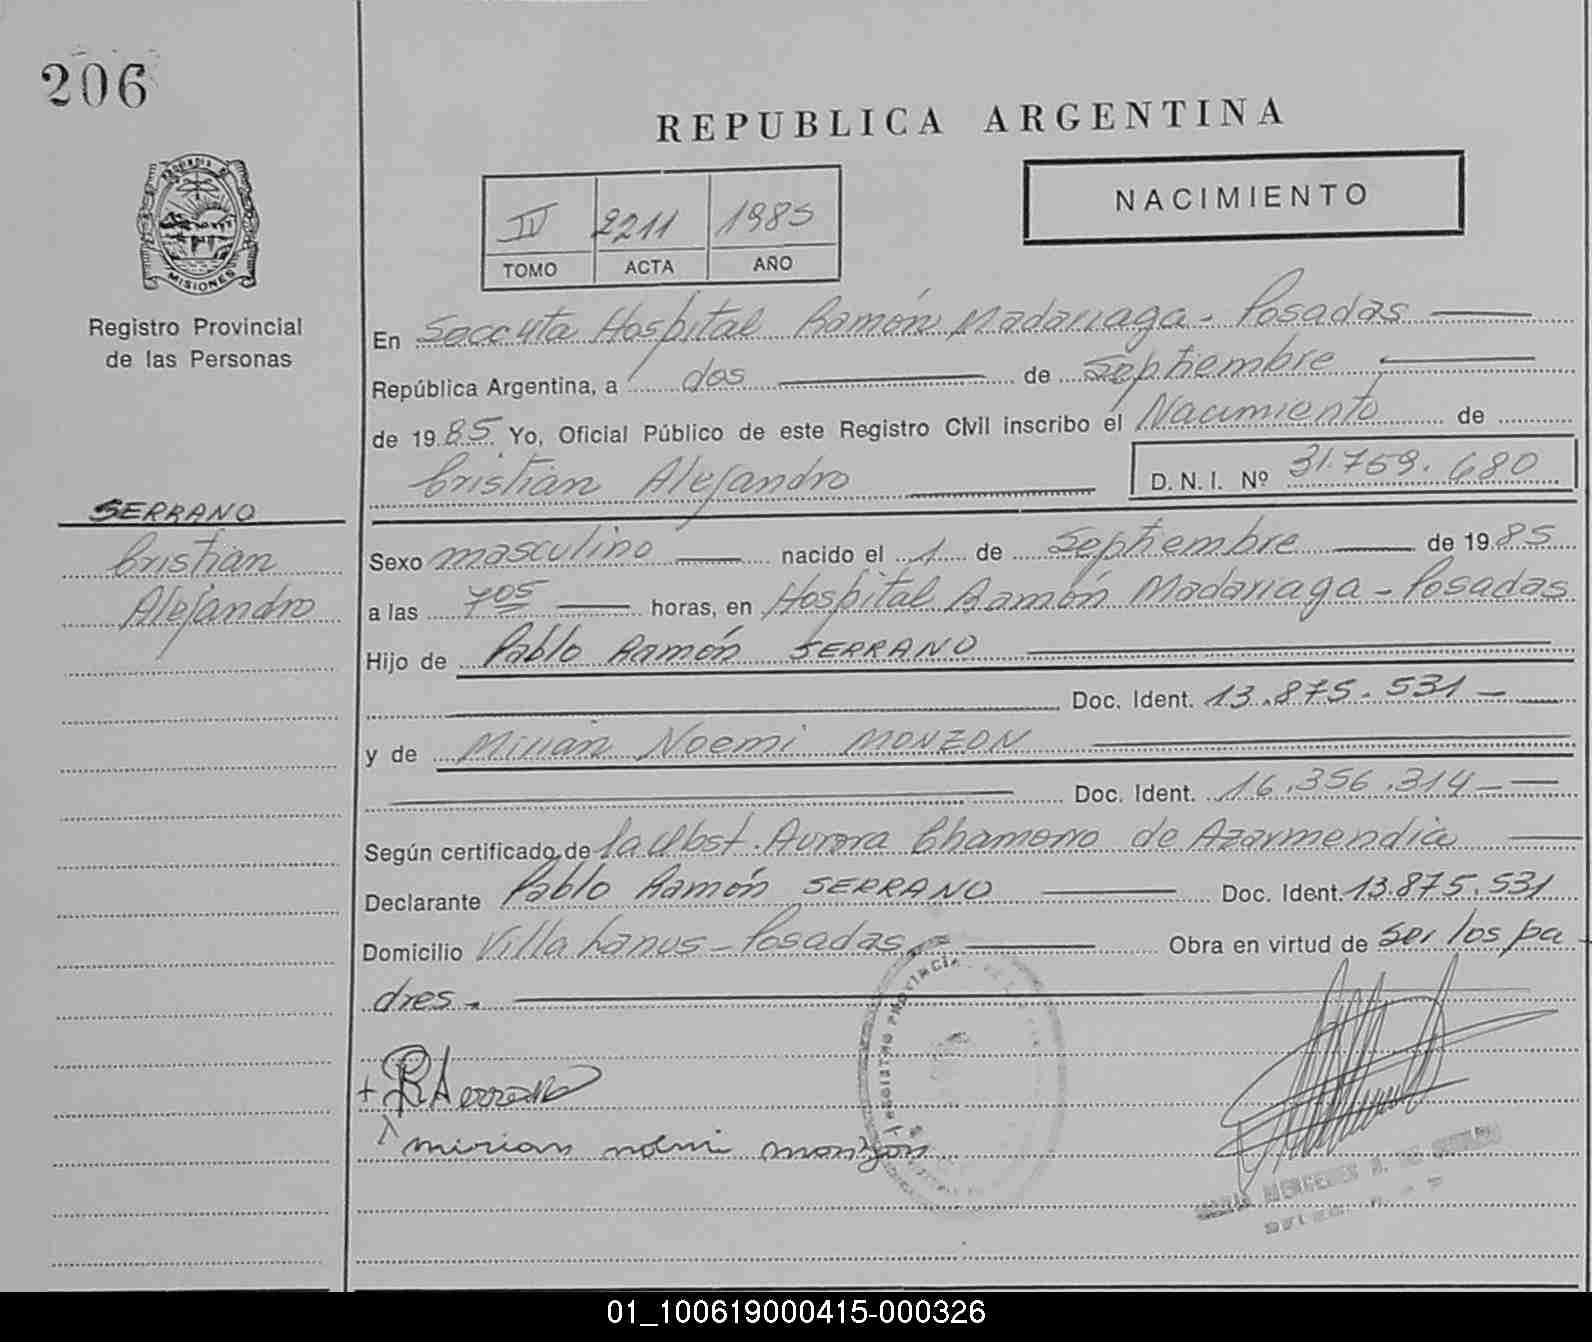 206
REPUBLICA ARGENTINA
PROVINCIA DE
MISIONES
Registro Provincial
de las Personas
IV 2211 1985
TOMO ACTA AÑO
NACIMIENTO
En Secc 4ta Hospital Ramón Madariaga - Posadas
República Argentina, a dos de Septiembre
de 1985 Yo, Oficial Público de este Registro Civil inscribo el Nacimiento de
Cristian Alejandro D.N.I. Nº 31.759.680
SERRANO
Cristian
Alejandro
Sexo masculino nacido el 1 de Septiembre de 1985
a las 7 05 horas, en Hospital Ramón Madariaga - Posadas
Hijo de Pablo Ramón SERRANO
Doc. Ident. 13.875.531 -
y de Mirian Noemi MONZON
Doc. Ident. 16.356.314 -
Según certificado de la Obst. Aurora Chamorro de Azarmendia
Declarante Pablo Ramón SERRANO Doc. Ident. 13.875.531
Domicilio Villa Lanus - Posadas Obra en virtud de ser los pa-
dres.-
REGISTRO PROVINCIAL DE LAS
mirian noemi monzon
01_100619000415-000326